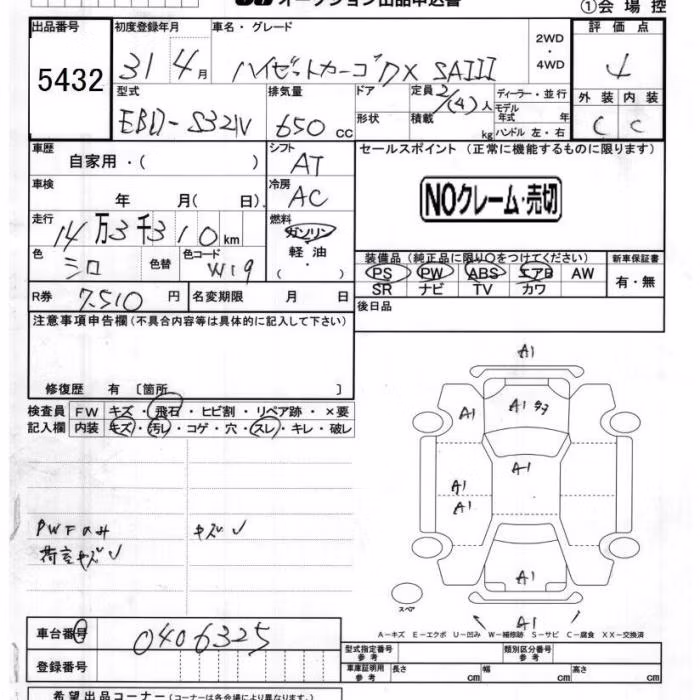 オークション出品申込書
①会場控
出品番号
5432
初度登録年月
31 4月
車名・グレード
ハイゼットカーゴDX SAIII
2WD
・
4WD
評価点
4
型式
EBD-S321V
排気量
650 CC
ドア
形状
定員 2/(4)人
積載 kg
ディーラー・並行
モデル年式 年
ハンドル 左・右
外装 内装
C C
車歴
自家用・( )
シフト
AT
セールスポイント (正常に機能するものに限ります)
NOクレーム・売切
車検
年 月( 日)
冷房
AC
走行
14万3千310km
燃料
ガソリン
・
軽油
( )
色
シロ
色替
色コード
W19
装備品 (純正品に限り○をつけてください)
新車保証書
PS PW ABS エアB AW
SR ナビ TV カワ
有・無
R券 7,510円 名変期限 月 日
後日品
注意事項申告欄 (不具合内容等は具体的に記入して下さい)
修復歴 有 〔箇所 〕
検査員 FW キズ・飛石・ヒビ割・リペア跡・×要
記入欄 内装 キズ・汚レ・コゲ・穴・スレ・キレ・破レ
PWFのみ キズ
荷室キズ
A1
A1
A1
A1
A1
A1
A1
A1
スペア
A-キズ E-エクボ U-凹み W-補修跡 S-サビ C-腐食 XX-交換済
車台番号
0406325
登録番号
型式指定番号
参考
類別区分番号
参考
車庫証明用
参考
長さ cm 幅 cm 高さ cm
希望出品コーナー (コーナーは各会場により異なります)